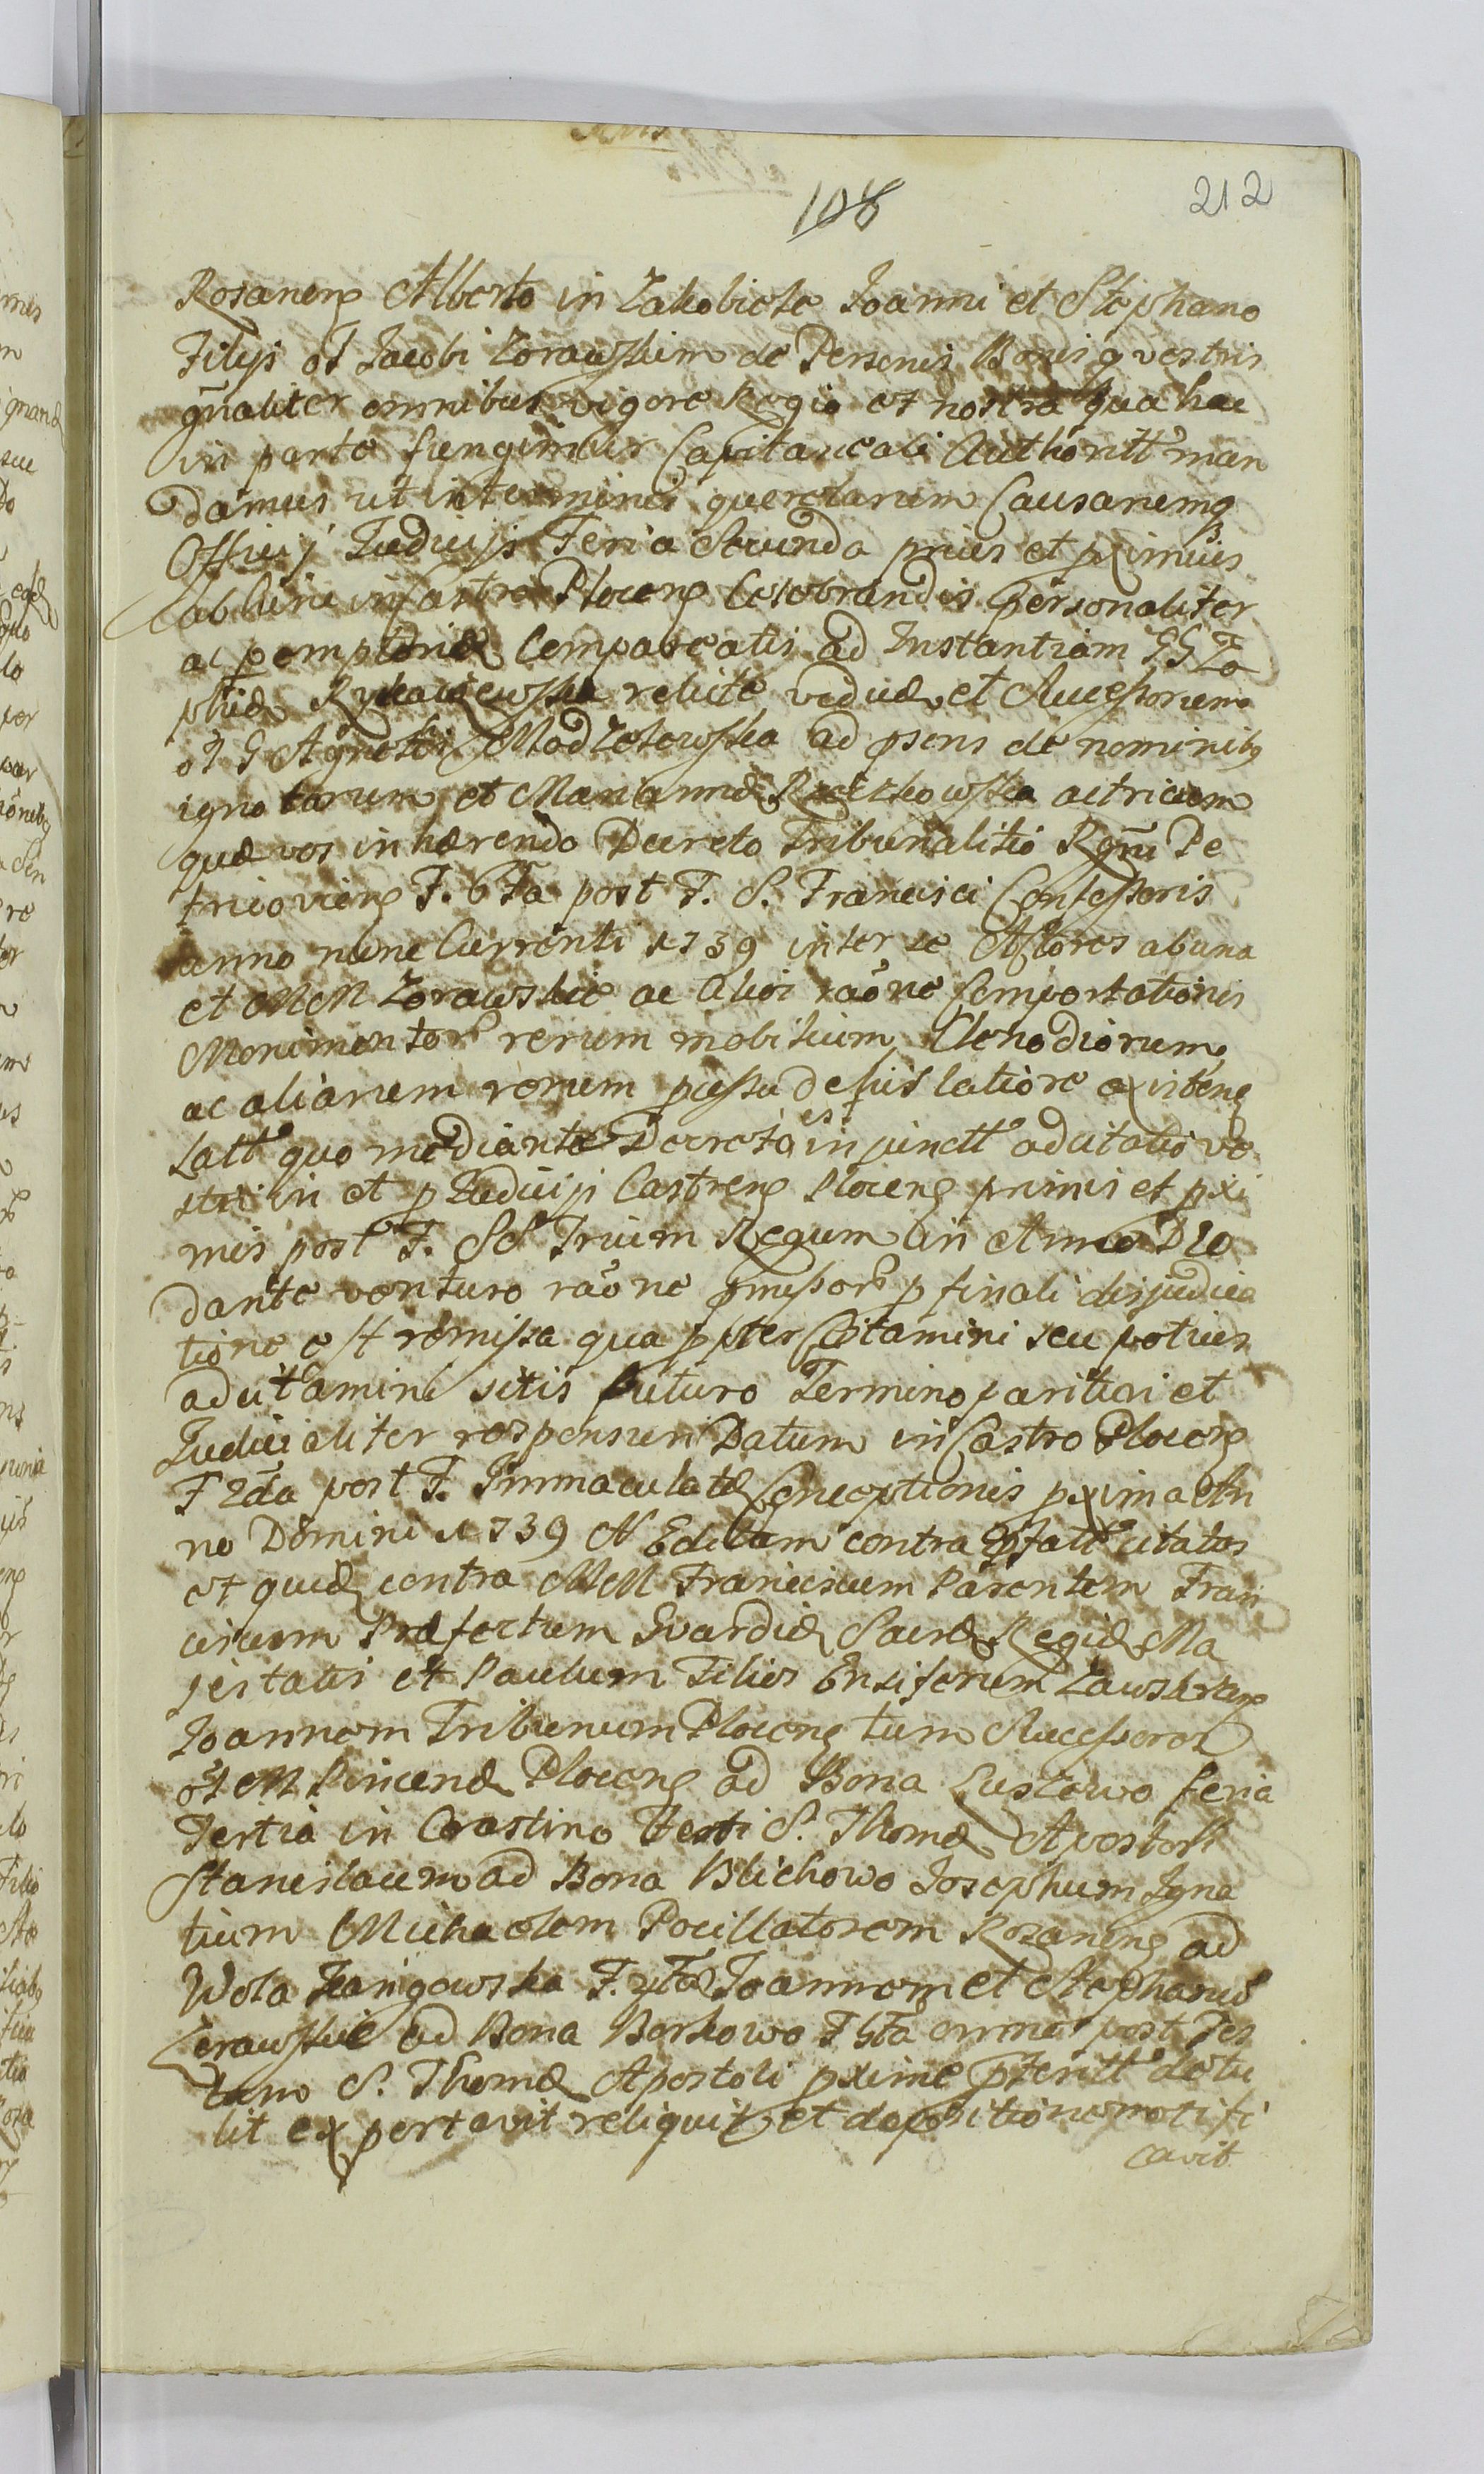 108
212
Rosanens Alberto in Zakobiele Joanni et Stephano
Filijs ot Jacobi Zorawskim de Personis Bonisq vestris
gnaliter omnibus vigore Regia et nostra qua hac
in parte fungimur Capitaneali Authoritt man
damus ut in terminis querelarum Causarumq
Officij Judicijs Feria Secunda prius et pximius
abhinc in Castro Plocens Celebrandis personaliter
ac pemptoriæ Compareatis ad Instantiam GG Zo
phiæ relictæ viduæ et Successorum
ot G Agnetis ad psens de nominibq
ignotarum et Mariannæ actricum
quæ vos inhærendo Decreto Tribunalitio Regni Pe
tricoviens F. 6ta post F. S. Francisci Confessoris
anno nunc Currenti 1739 inter se Actores ab una
et MM Zorawskie ac alios raone Comportationis
Monimentor rerum mobilium, Clenodiorum,
ac aliarum rerum latiore
Latt quo mediante Decreto es injunctt adcitatio ve
stri in et p Judicijs Castrens Plocens primis et pxi
mis post F. SS Trium Regum in Anno D Eo
dante venturo raone pmissor p finali disjudica
tione est remissa qua ppter Citamini seu potius
adcitamini sitis futuro Termino parituri et
Judicialiter responsuri Datum in Castro Plocens
F 2da post F. Immaculatæ Conceptionis pxima An
no Domini 1739 N Editam contra pfatt citatos
et quidæ contra MM Franciscum Parentem Fran
ciscum Præfectum Gvardiæ Sacræ Regiæ Ma
jestatis et Paulum Filios Ensiferum Zawskrzens
Joannem Tribunum Plocens tum Successores
ot M Pincernæ Plocens ad Bona Lustowo feria
Tertia in Crastino Festi S. Thomæ Apostoli
Stanislaum ad Bona Blichowo Josephum Igna
tium Michaelem Pocillatorem Rosanens ad
Wola F. 4ta Joannem et Stephanum
Zorawskie ad Bona Borkowo F 5ta omnes post Fes
tum S. Thomæ Apostoli pxime pteritt detu
lit exportavit reliquit et depositione notifi
cavit